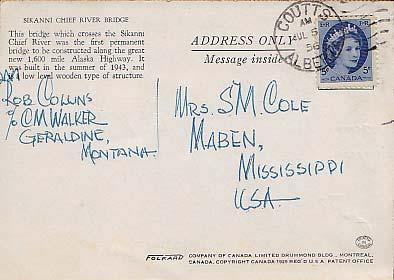 SIKANNI CHIEF RIVER BRIDGE
This bridge which crosses the Sikanni
Chief River was the first permanent
bridge to be constructed along the great
new 1,600 mile Alaska Highway. It
was built in the summer of 1943, and
is of low level wooden type of structure.
ADDRESS ONLY
Message inside
COUTTS
AM
JUL 5
56
ALBERTA
CANADA
5
ROB COLLINS
c/o CM WALKER
GERALDINE,
MONTANA.
MRS. SM COLE
MABEN,
MISSISSIPPI
USA
FOLKARD COMPANY OF CANADA LIMITED DRUMMOND BLDG., MONTREAL,
CANADA. COPYRIGHT CANADA 1929 REG'D U.S.A. PATENT OFFICE